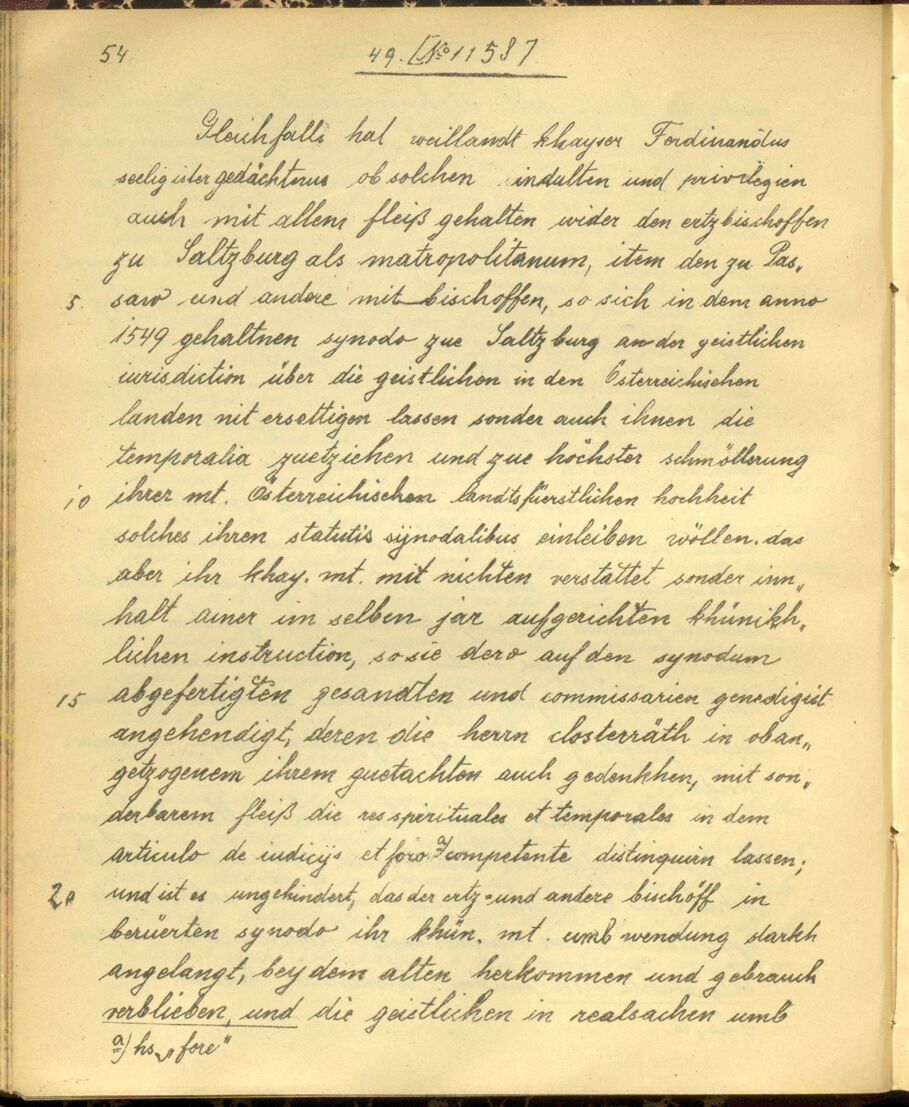 54
49. [No 1158]
Gleichfalls hat weillandt khayser Ferdinandus
seeligister gedächtnus ob solchen indulten und privilegien
auch mit allem fleiß gehalten wider den ertzbischoffen
zu Saltzburg als matropolitanum, item den zu Pas„
5. saw und andere mit bischoffen, so sich in dem anno
1549 gehaltnen synodo zue Saltzburg an der geistlichen
iurisdiction über die geistlichen in den Österreichischen
landen nit ersettigen lassen sonder auch ihnen die
temporalia zuetziehen und zue höchster schmöllerung
10 ihrer mt. Österreichischen landtsfüerstlichen hochheit
solches ihren statutis sÿnodalibus einleiben wöllen. das
aber ihr khay. mt. mit nichten verstattet sonder inn„
halt ainer im selben jar aufgerichten khünikh„
lichen instruction, so sie dero auf den synodum
15 abgefertigten gesandten und commissarien genedigist
angehendigt, deren die herrn closterräth in oban„
getzogenem ihrem guetachten auch gedenkhen, mit son„
derbarem fleiß die res spirituales et temporales in dem
articulo de iudicijs et foro a) competente distinguirn lassen;
20 und ist es ungehindert, das der ertz- und andere bischöff in
berüerten synodo ihr khün. mt. umb wendung starkh
angelangt, bey dem alten herkommen und gebrauch
verblieben, und die geistlichen in realsachen umb
a) hs. „fore"